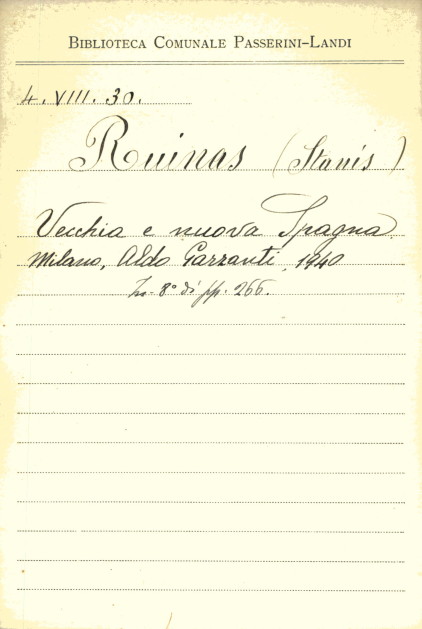 BIBLIOTECA COMUNALE PASSERINI-LANDI
4. VIII. 30.
Ruinas (Stanis)
Vecchia e nuova Spagna
Milano, Aldo Garzanti, 1940
In-8° di pp. 266.